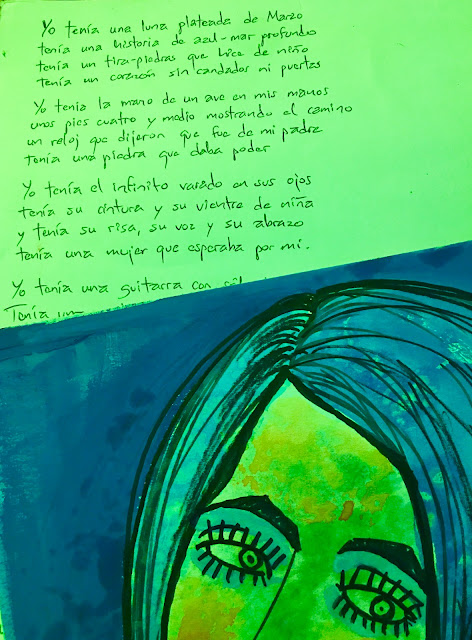 Yo tenía una luna plateada de Marzo
tenía una historia de azul-mar profundo
tenía un tira-piedras que hice de niño
tenía un corazón sin candados ni puertas
Yo tenía la mano de un ave en mis manos
unos pies cuatro y medio mostrando el camino
un reloj que dijeron que fue de mi padre
tenía una piedra que daba poder
Yo tenía el infinito varado en sus ojos
tenía su cintura y su vientre de niña
y tenía su risa, su voz y su abrazo
tenía una mujer que esperaba por mí.
Yo tenía una guitarra con
Tenía